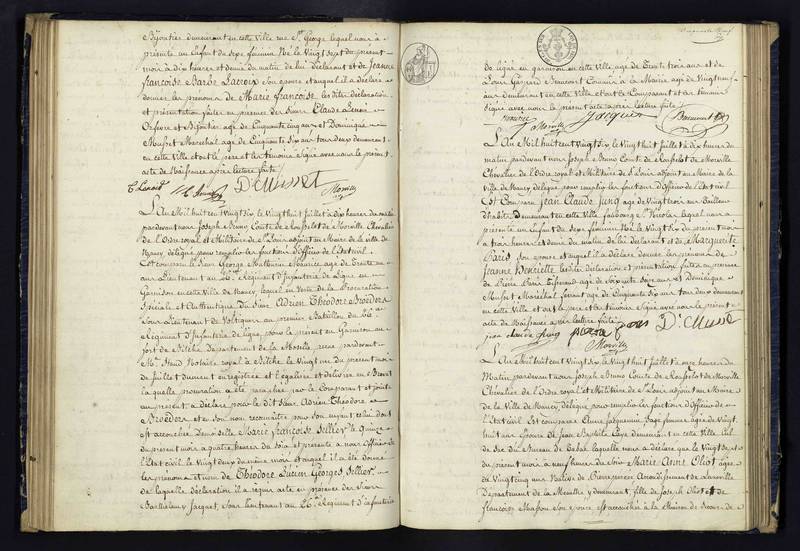 Bijoutier demeurant en cette Ville rue St. George lequel nous a
présenté un Enfant du sexe féminin Né le Vingt Sept du présent
mois à dix heures et demie du matin de lui déclarant et de Jeanne
françoise Barbe Lacroix son épouse et auquel il a déclaré
donner les prénoms de Marie françoise, lesdites déclaration
et présentation faites en présence des Sieurs Claude Lenoir
Orfèvre et Bijoutier agé de Cinquante Cinq ans et Dominique
Musset Marechal agé de Cinquante Six ans tous deux demeurant
en cette Ville et ont le père et les témoins Signé avec nous le présent
acte de Naissance après lecture faite
C Lenoir D. Musset Morville
L'An Mil huit cent Vingt Six, le Vingt huit Juillet à dix heures du matin
pardevant nous Joseph Bruno Comte de de Morville Chevalier
de l'Ordre royal et Militaire de St. Louis adjoint au Maire de la Ville de
Nancy, délégué pour remplir les fonctions d'officier de l'Etat civil.
Est comparu le Sieur George Maurice agé de Trente
ans Lieutenant au Régiment d'Infanterie de Ligne en
Garnison en cette Ville de Nancy, lequel en Vertu de la Procuration
Spéciale et Authentique du Sieur Adrien Théodore Broëders
Sous Lieutenant de Voltigeurs au premier Bataillon du
Régiment d'Infanterie de Ligne, pour le présent en Garnison au
fort de Bitche Département de la Moselle, reçue pardevant
Me. Notaire royal à Bitche le Vingt un du présent mois
de Juillet dument enregistrée et Légalisée et délivrée en Brevet
laquelle procuration a été paraphée par le Comparant et jointe
au présent, a déclaré pour le dit Sieur Adrien Théodore
Broëders et en son nom reconnaître pour son enfant celui dont
est accouchée Demoiselle Marie françoise Sellier le Quinze
du présent mois à quatre heures du Soir et présenté à nous officier de
l'Etat civil, le Vingt deux du même mois et auquel il a été donné
les prénoms et nom de Théodore Lucien Georges Sellier.
de laquelle déclaration il a requis acte en présence des Sieurs
Barthelemy Jacquet, Sous Lieutenant au Régiment d'infanterie
de Ligne en garnison en cette Ville, agé de Trente trois ans et de
Louis Gaspard Beaucourt Commis à la Mairie agé de Vingt neuf
ans demeurant en cette Ville et ont le Comparant et les témoins
Signé avec nous le présent acte après lecture faite
Morville Jacquet
L'An Mil huit cent Vingt Six, le Vingt huit Juillet à dix heures du
matin pardevant nous Joseph Bruno Comte de de Morville
Chevalier de l'Ordre royal et Militaire de St. Louis adjoint au Maire de la
Ville de Nancy, délégué pour remplir les fonctions d'officier de l'Etat civil
Est Comparu Jean Claude Jung agé de Vingt trois ans Tailleur
d'habits demeurant en cette Ville, faubourg St. Nicolas, lequel nous a
présenté un Enfant du sexe féminin Né le Vingt Six du présent mois
à trois heures et demie du matin de lui déclarant et de Marguerite
Paris, son épouse et auquel il a déclaré donner les prénoms de
Jeanne Henriette, lesdites déclaration et présentation faites en présence
de Pierre Paris agé de Soixante Six ans et Dominique
Musset Maréchal ferrant agé de Cinquante Six ans tous deux demeurant
en cette Ville et ont le père et les témoins Signé avec nous le présent
acte de Naissance après lecture faite
jean claude jung D. Musset
Morville
L'An Mil huit cent Vingt Six, le Vingt huit Juillet à onze heures du
Matin pardevant nous Joseph Bruno Comte de de Morville
Chevalier de l'Ordre royal et Militaire de St. Louis adjoint au Maire
de la Ville de Nancy, délégué pour remplir les fonctions d'officier de
l'Etat civil Est comparue Anne Jacquemin Sage femme agée de Vingt
huit ans épouse de Jean Baptiste Caye demeurant en cette Ville,
de Sac laquelle nous a déclaré que le Vingt Sept
du présent mois à neuf heures du Soir Marie Anne Oliot agée
de Vingt cinq ans Native de Arrondissement de Lunéville
Département de la Meurthe y demeurant, fille de Joseph Oliot et de
françoise son épouse est accouchée à la Maison de Secours